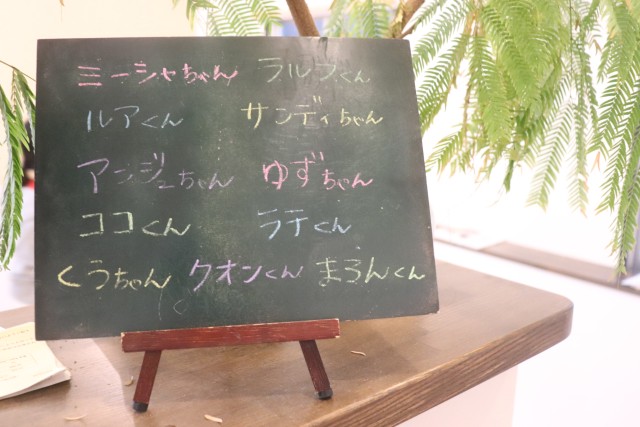 ミーシャちゃん ラルフくん
ルアくん サンディちゃん
アンジュちゃん ゆずちゃん
ココくん ラテくん
くうちゃん クオンくん まろんくん